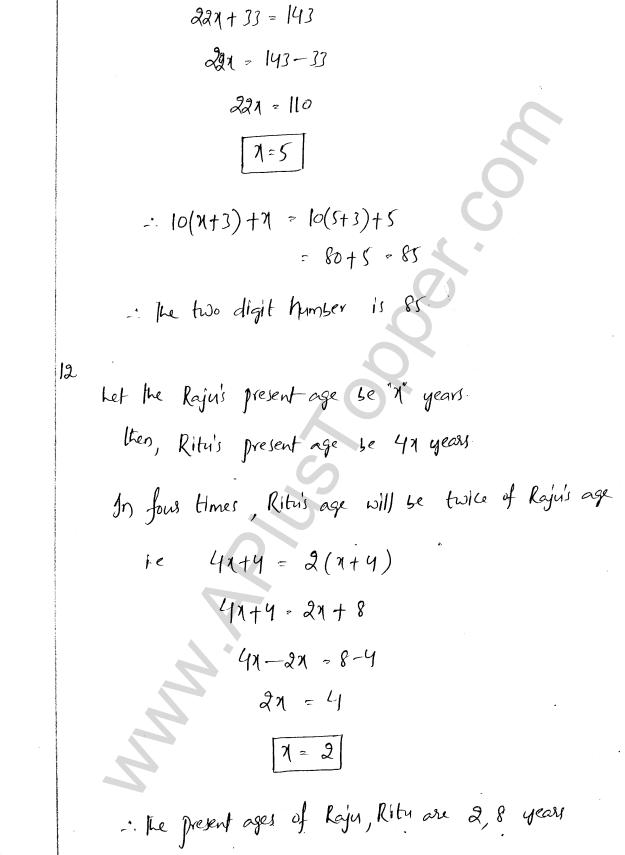 22x + 33 = 143
22x = 143 - 33
22x = 110
x = 5
∴ 10(x+3)+x = 10(5+3)+5
= 80+5 = 85
∴ The two digit number is 85.
12
Let the Raju's present age be "x" years.
then, Ritu's present age be 4x years.
In four times, Ritu's age will be twice of Raju's age
i.e 4x+4 = 2(x+4)
4x+4 = 2x + 8
4x - 2x = 8-4
2x = 4
x = 2
∴ The present ages of Raju, Ritu are 2, 8 years
www.APlusTopper.com